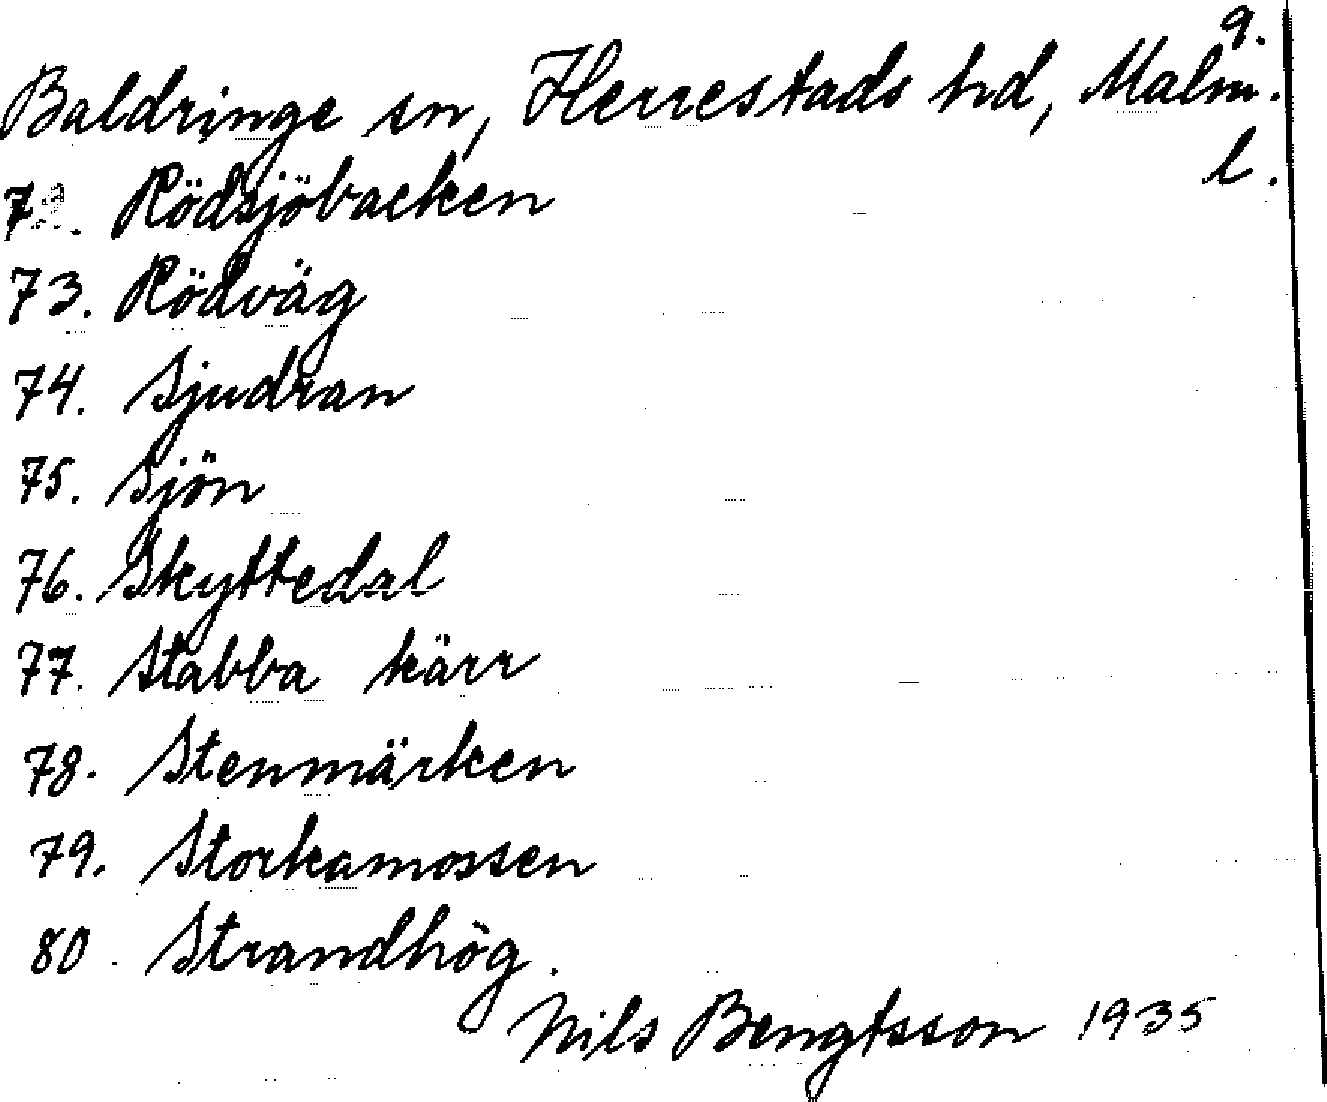 9.
Baldringe sn, Herrestads hd, Malm.
l.
72. Rödsjöbacken
73. Rödväg
74. Sjudran
75. Sjön
76. Skyttedal
77. Stabba kärr
78. Stenmärken
79. Storkamossen
80. Strandhög.
Nils Bengtsson 1935